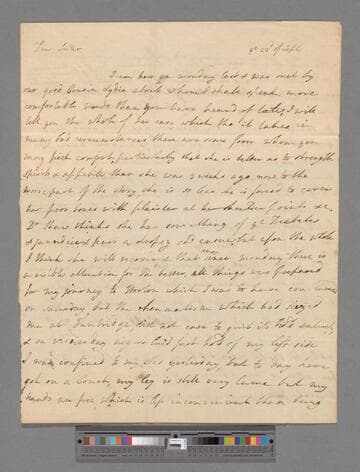 Dear Sister ye 22d of Sept.
I came here on monday last & was met by
our good Cousin Lydia about whom I shall speak more
comfortable words than you have heard of late, I will
tell you the whole of her case which tho' it takes in
many bad circumstances there are some from whom you
may pick comfort, particularly that she is better as to strength
spirits & appetite than she was 3 weeks ago, now to the
worse part of the story, she is so lean she is forced to cover
her poor bones with plaister at her shoulder points &c.
Dr Shaw thinks she has something of ye Diabetes
& jaundice & fears a dropsy, but upon the whole
I think she will recover & that since monday there is
a visible alteration for the better, all things were prepared
for my journey to which I was to have
on saturday but the rheumatism which had seized
me at Tunbridge did not care to quit its hold entirely
& on wednesday night laid fast hold of my left side
I was confined to my yesterday, but to day have
got on a my leg is still very lame but my
hands are free which is less inconvenient than being